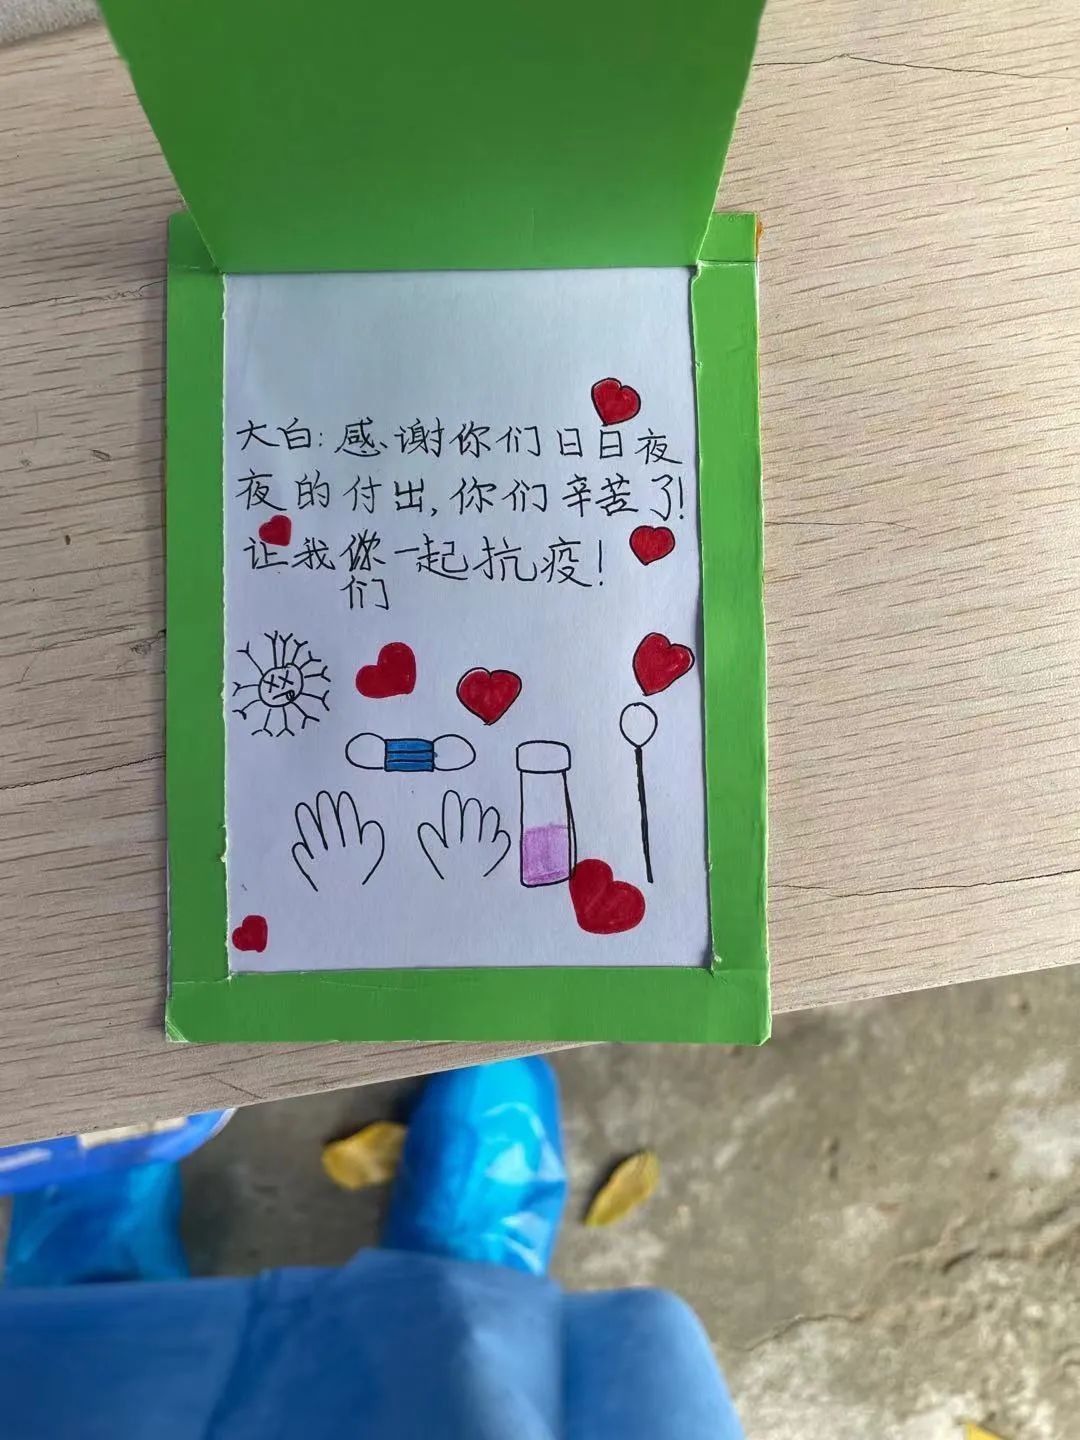 大白：感谢你们日日夜
夜的付出，你们辛苦了！
让我们一起抗疫！